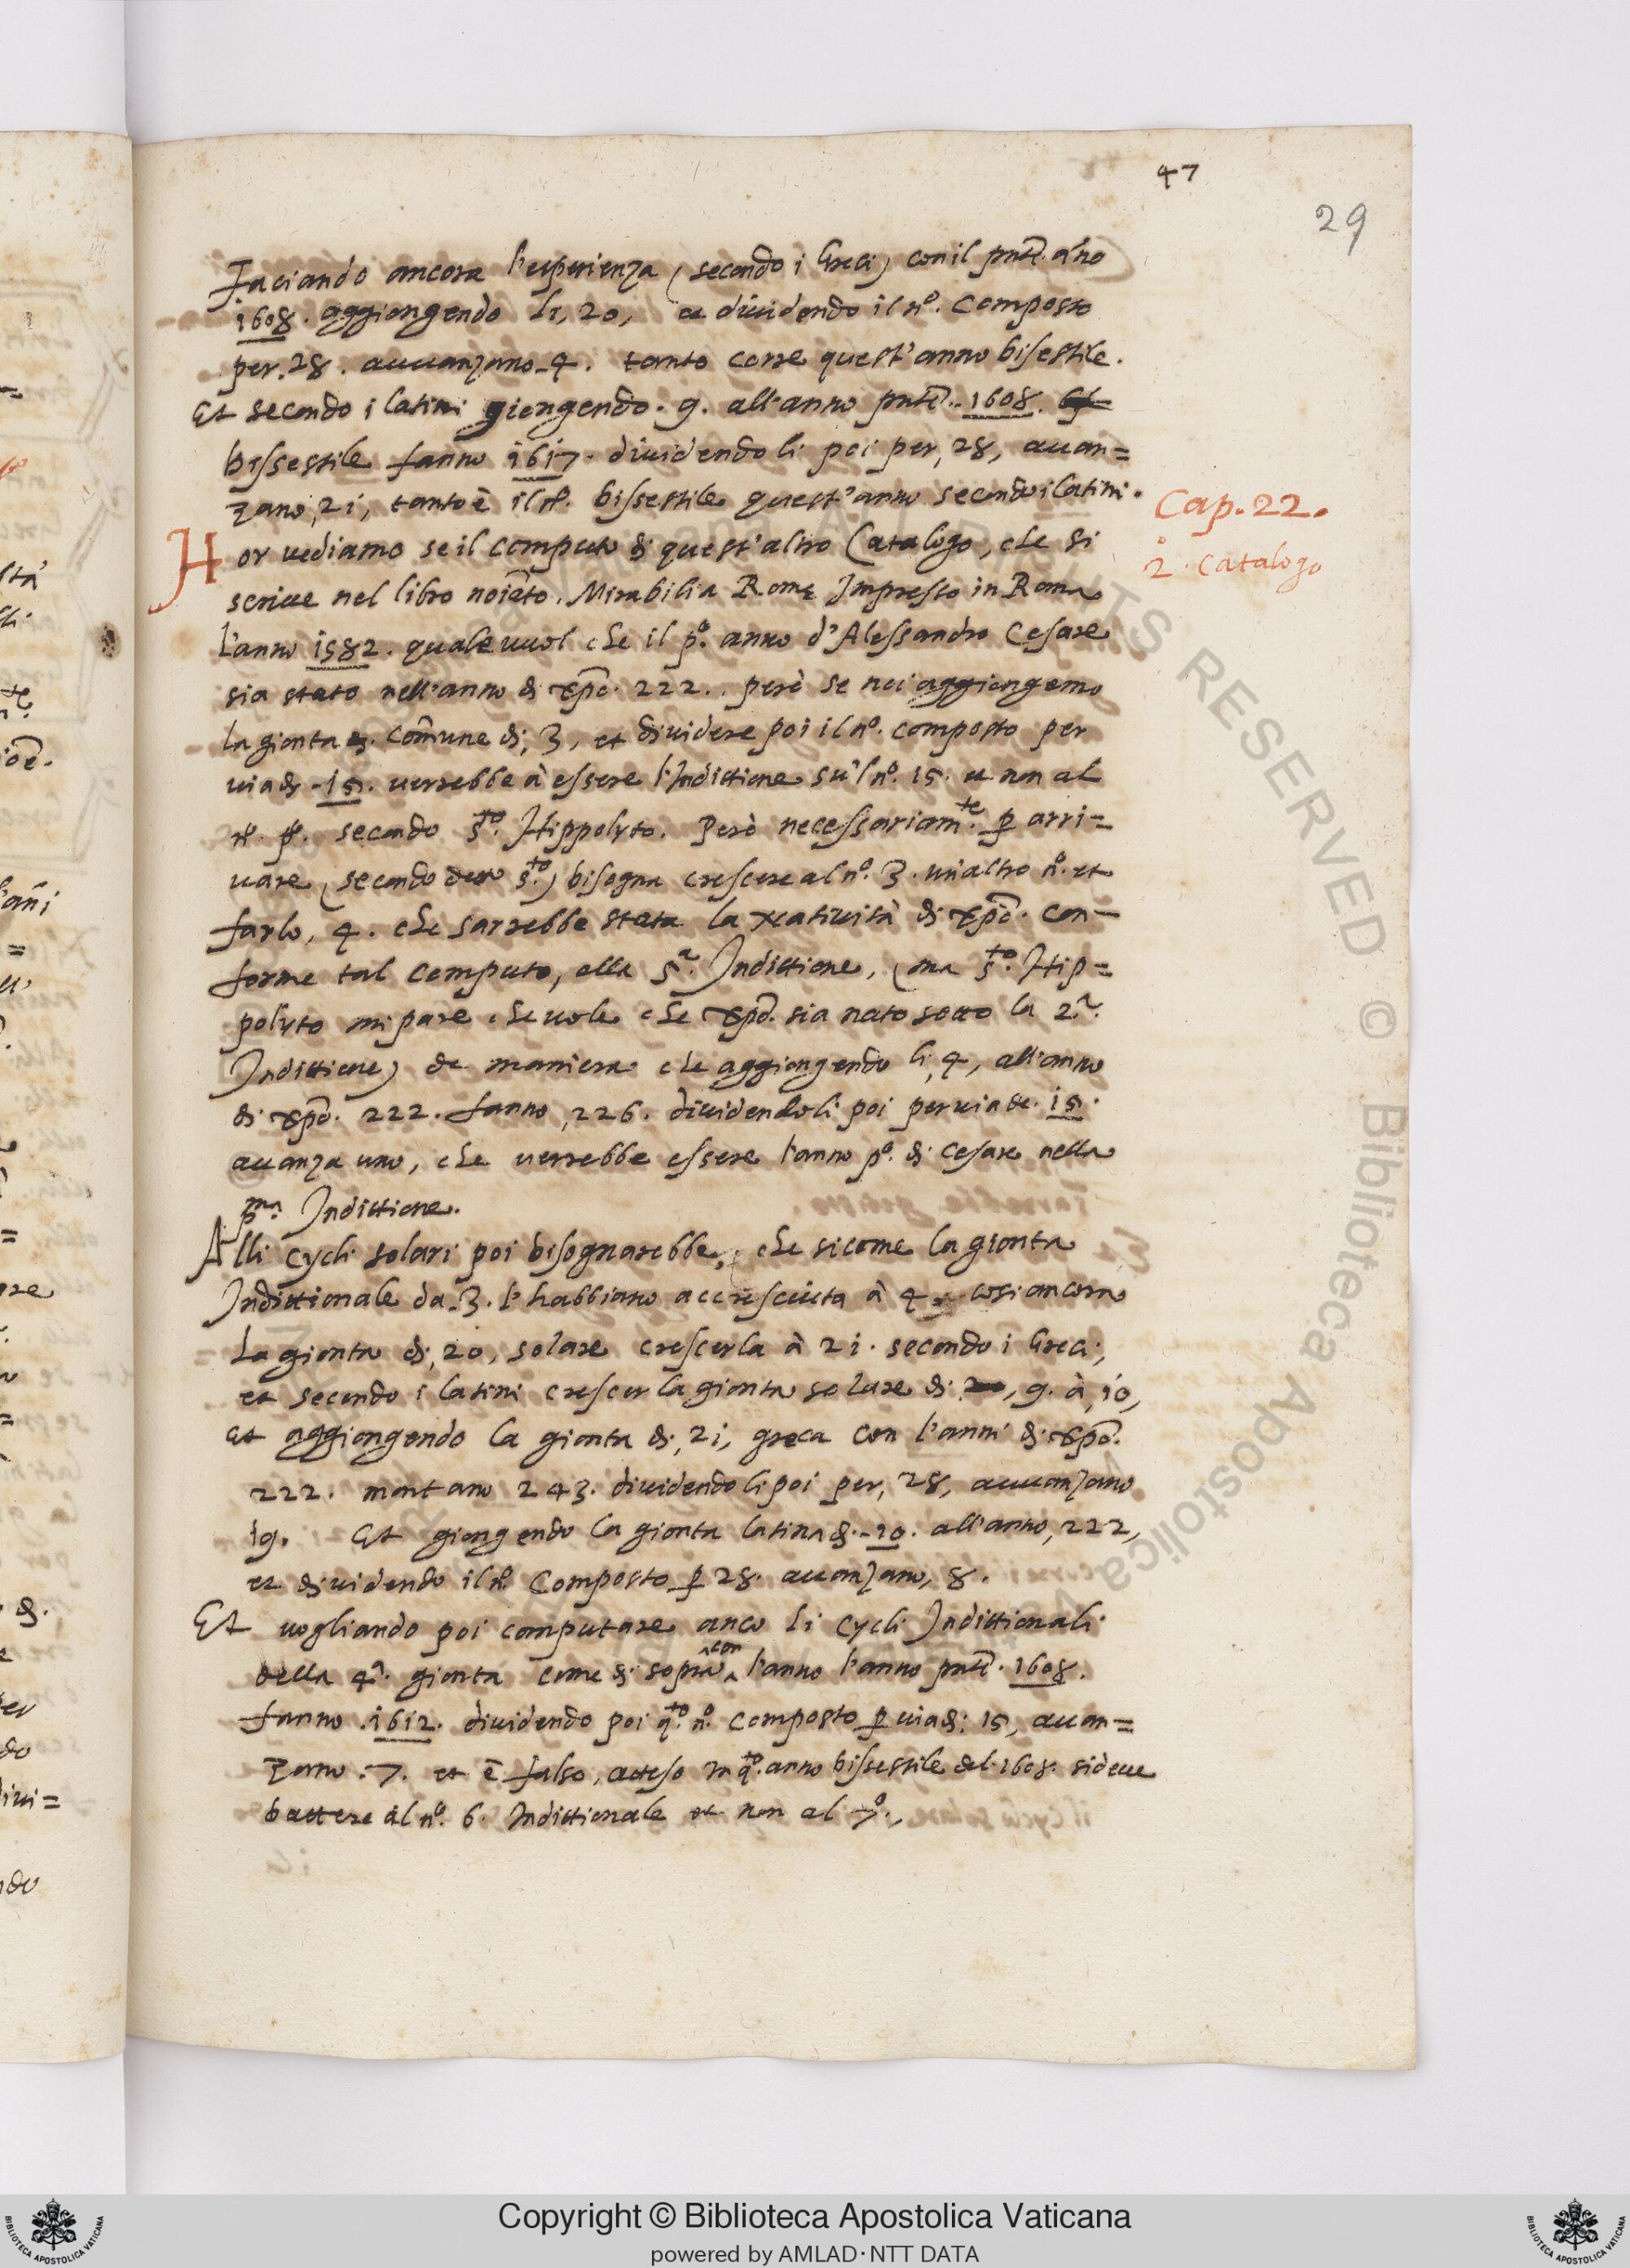 47
29
Faciando ancora l'esperienza (secondo i Greci) con il pñte. año
1608. aggiongendo li, 20, et dividendo il nº. composto
per. 28. auuanzano. 4. tanto corre quest'anno bisestile.
Et secondo i latini giongendo. 9. all'anno pñte. 1608.
bissestile fanno 1617. dividendoli poi per, 28, auan=
zano, 21, tanto è il nº. bissestile quest'anno secondo i latini.
Cap. 22.
2º. Catalogo
Hor uediamo se il computo di quest'altro Catalogo, che si
scriue nel libro noiẽto. Mirabilia Rome Impresso in Roma
l'anno 1582. quale uuol che il pº. anno d'Alessandro Cesare
sia stato nell'anno di xpõ. 222.. però se noi aggiongemo
la gionta comune di, 3, et dividere poi il nº. composto per
uia di. 15. uerrebbe à essere l'Indittione su'l nº. 15. et non al
nº. pº. secondo sto. Hippolyto. Però necessariamte. ꝑ arri=
uare (secondo detto sto.) bisogna crescere al nº. 3. un'altro nº. et
farlo, 4. che sarrebbe stata la natiuità di xpõ. con=
forme tal computo, alla 5ª. Indittione, (ma sto. Hip=
polyto mi pare che uole che xpõ. sia nato sotto la 2ª.
Indittione) de maniera che aggiongendo li, 4, all'anno
di xpõ. 222. fanno, 226. dividendoli poi per uia de. 15.
auanza uno, che uerrebbe essere l'anno pº. di Cesare nella
pma. Indittione.
Alli cycli solari poi bisognarebbe, che sicome la gionta
Indittionale da. 3. l'habbiamo accresciuta à 4. cosi ancora
la gionta di, 20, solare crescerla à 21. secondo i Greci,
et secondo i latini crescer la gionta solare di, 9. à, 10,
et aggiongendo la gionta di, 21, greca con l'anni di xpõ.
222. montano 243. dividendoli poi per, 28, auuanzano
19. Et giongendo la gionta latina di. 10. all'anno, 222,
et dividendo il nº. composto ꝑ 28. auanzano, 8.
Et uogliando poi computare anco li cycli Indittionali
della 4ª. gionta come di sopra con l'anno l'anno pñte. 1608.
fanno. 1612. dividendo poi qto. nº. composto ꝑ uia di: 15, auan=
zano. 7. et è falso, atteso in qto. anno bissestile del. 1608. si deue
battere al nº. 6. Indittionale et non al 7º.,
Copyright © Biblioteca Apostolica Vaticana
powered by AMLAD·NTT DATA